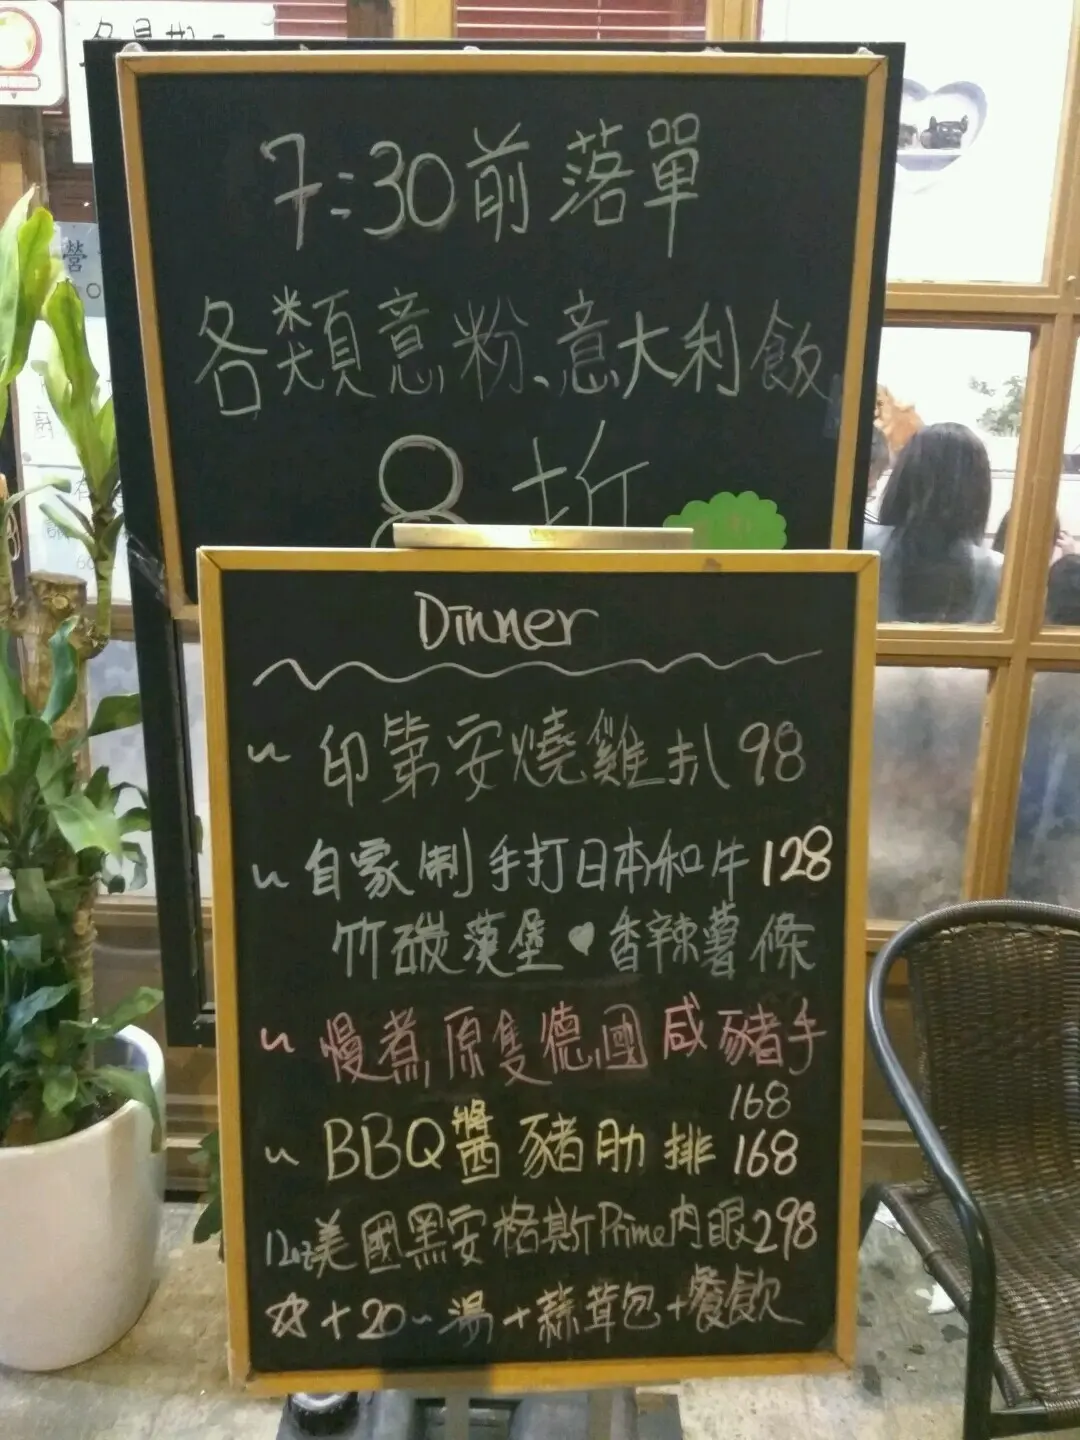 7:30前落單
各類意粉、意大利飯
8折
Dinner
~ 印第安燒雞扒 98
~ 自家制手打日本和牛 128
竹碳漢堡♥香辣薯條
~ 慢煮原隻德國咸豬手
168
~ BBQ醬豬肋排 168
12oz美國黑安格斯Prime肉眼298
☆+20~湯+蒜茸包+餐飲